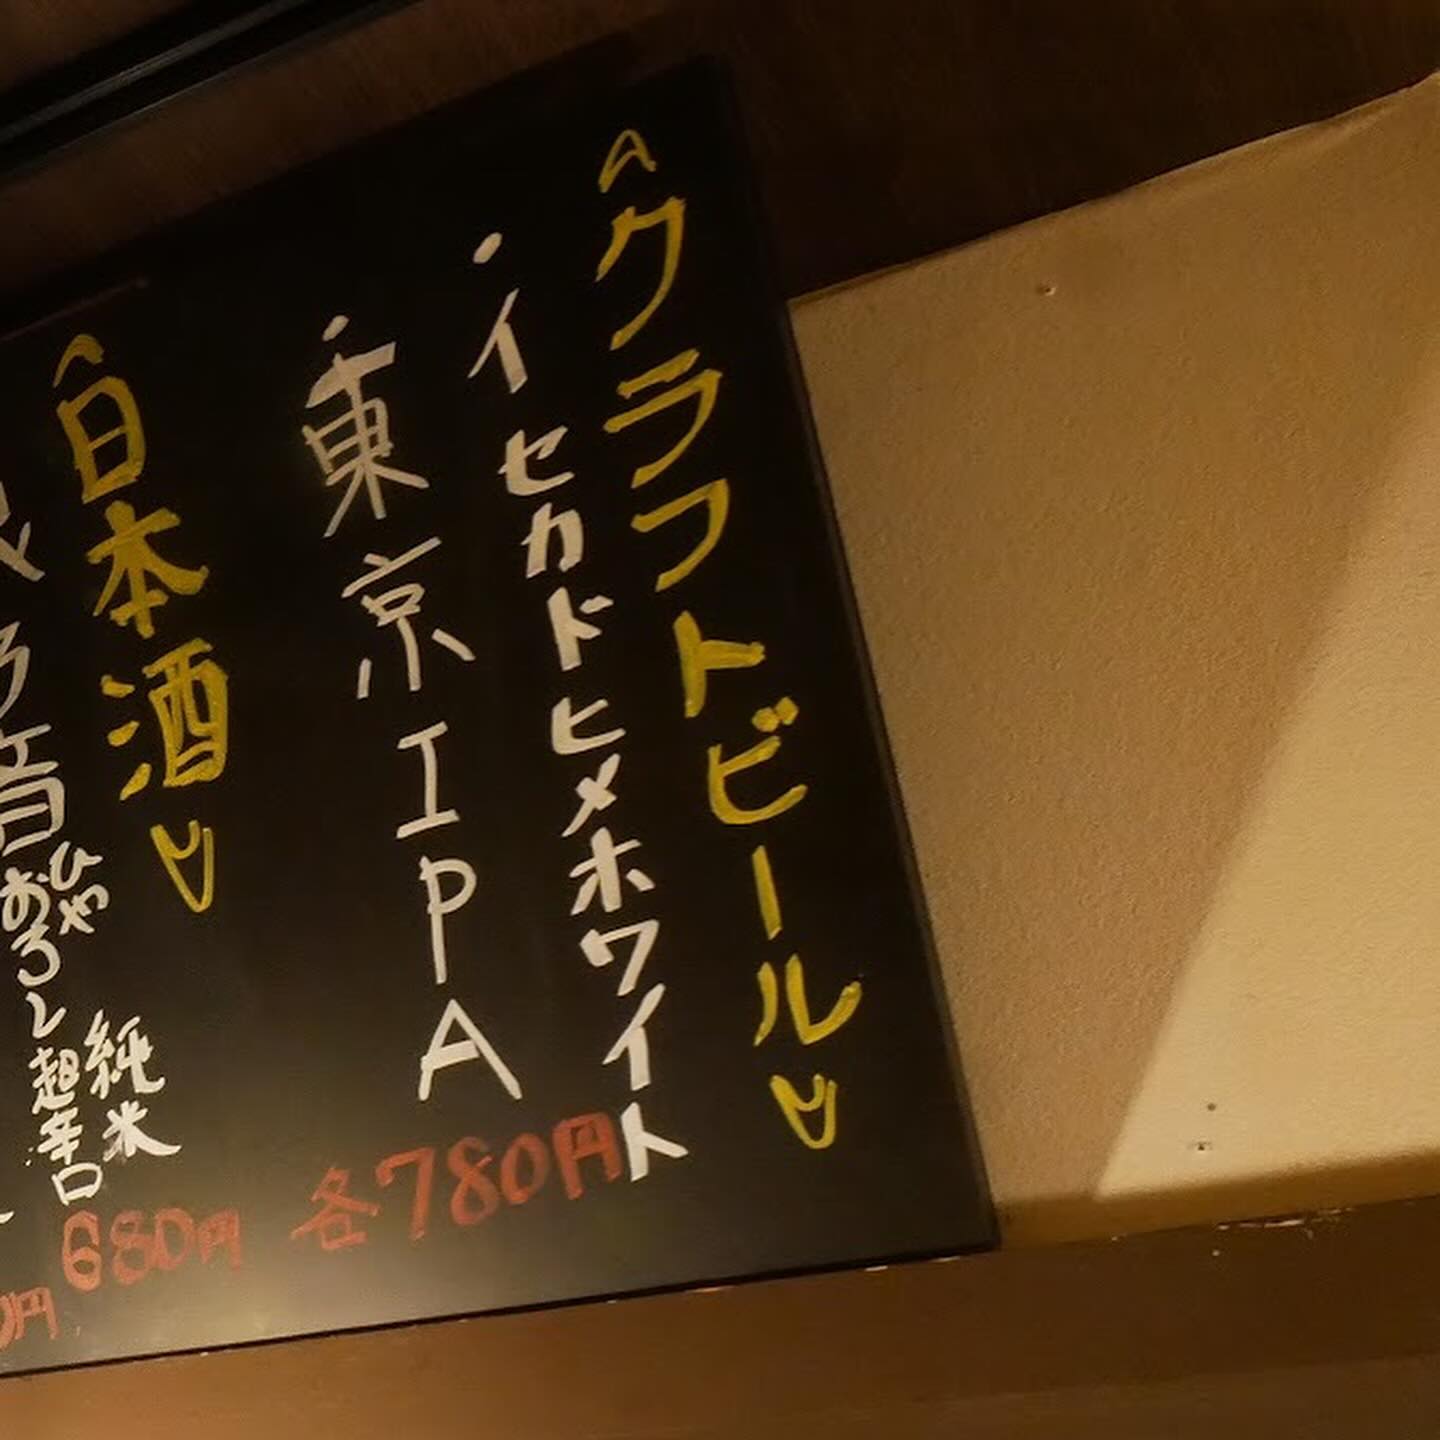 〈クラフトビール〉
・イセカドヒメホワイト
・東京IPA
各780円
〈日本酒〉
ひや
おろし
純米
超辛口
680円